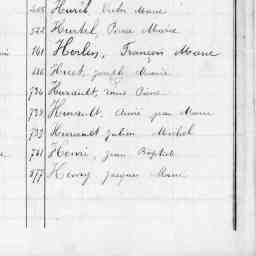 Hurel, Victor Marie
522 Hurtel, Pierre Marie
Herlin, François Marie
Huet, Joseph Marie
736 Hurault, Pierre
738 Hurault, Aimé Jean Marie
739 Hurault Julien Michel
761 Henri, Jean Baptiste
877 Henry Jacques Marie